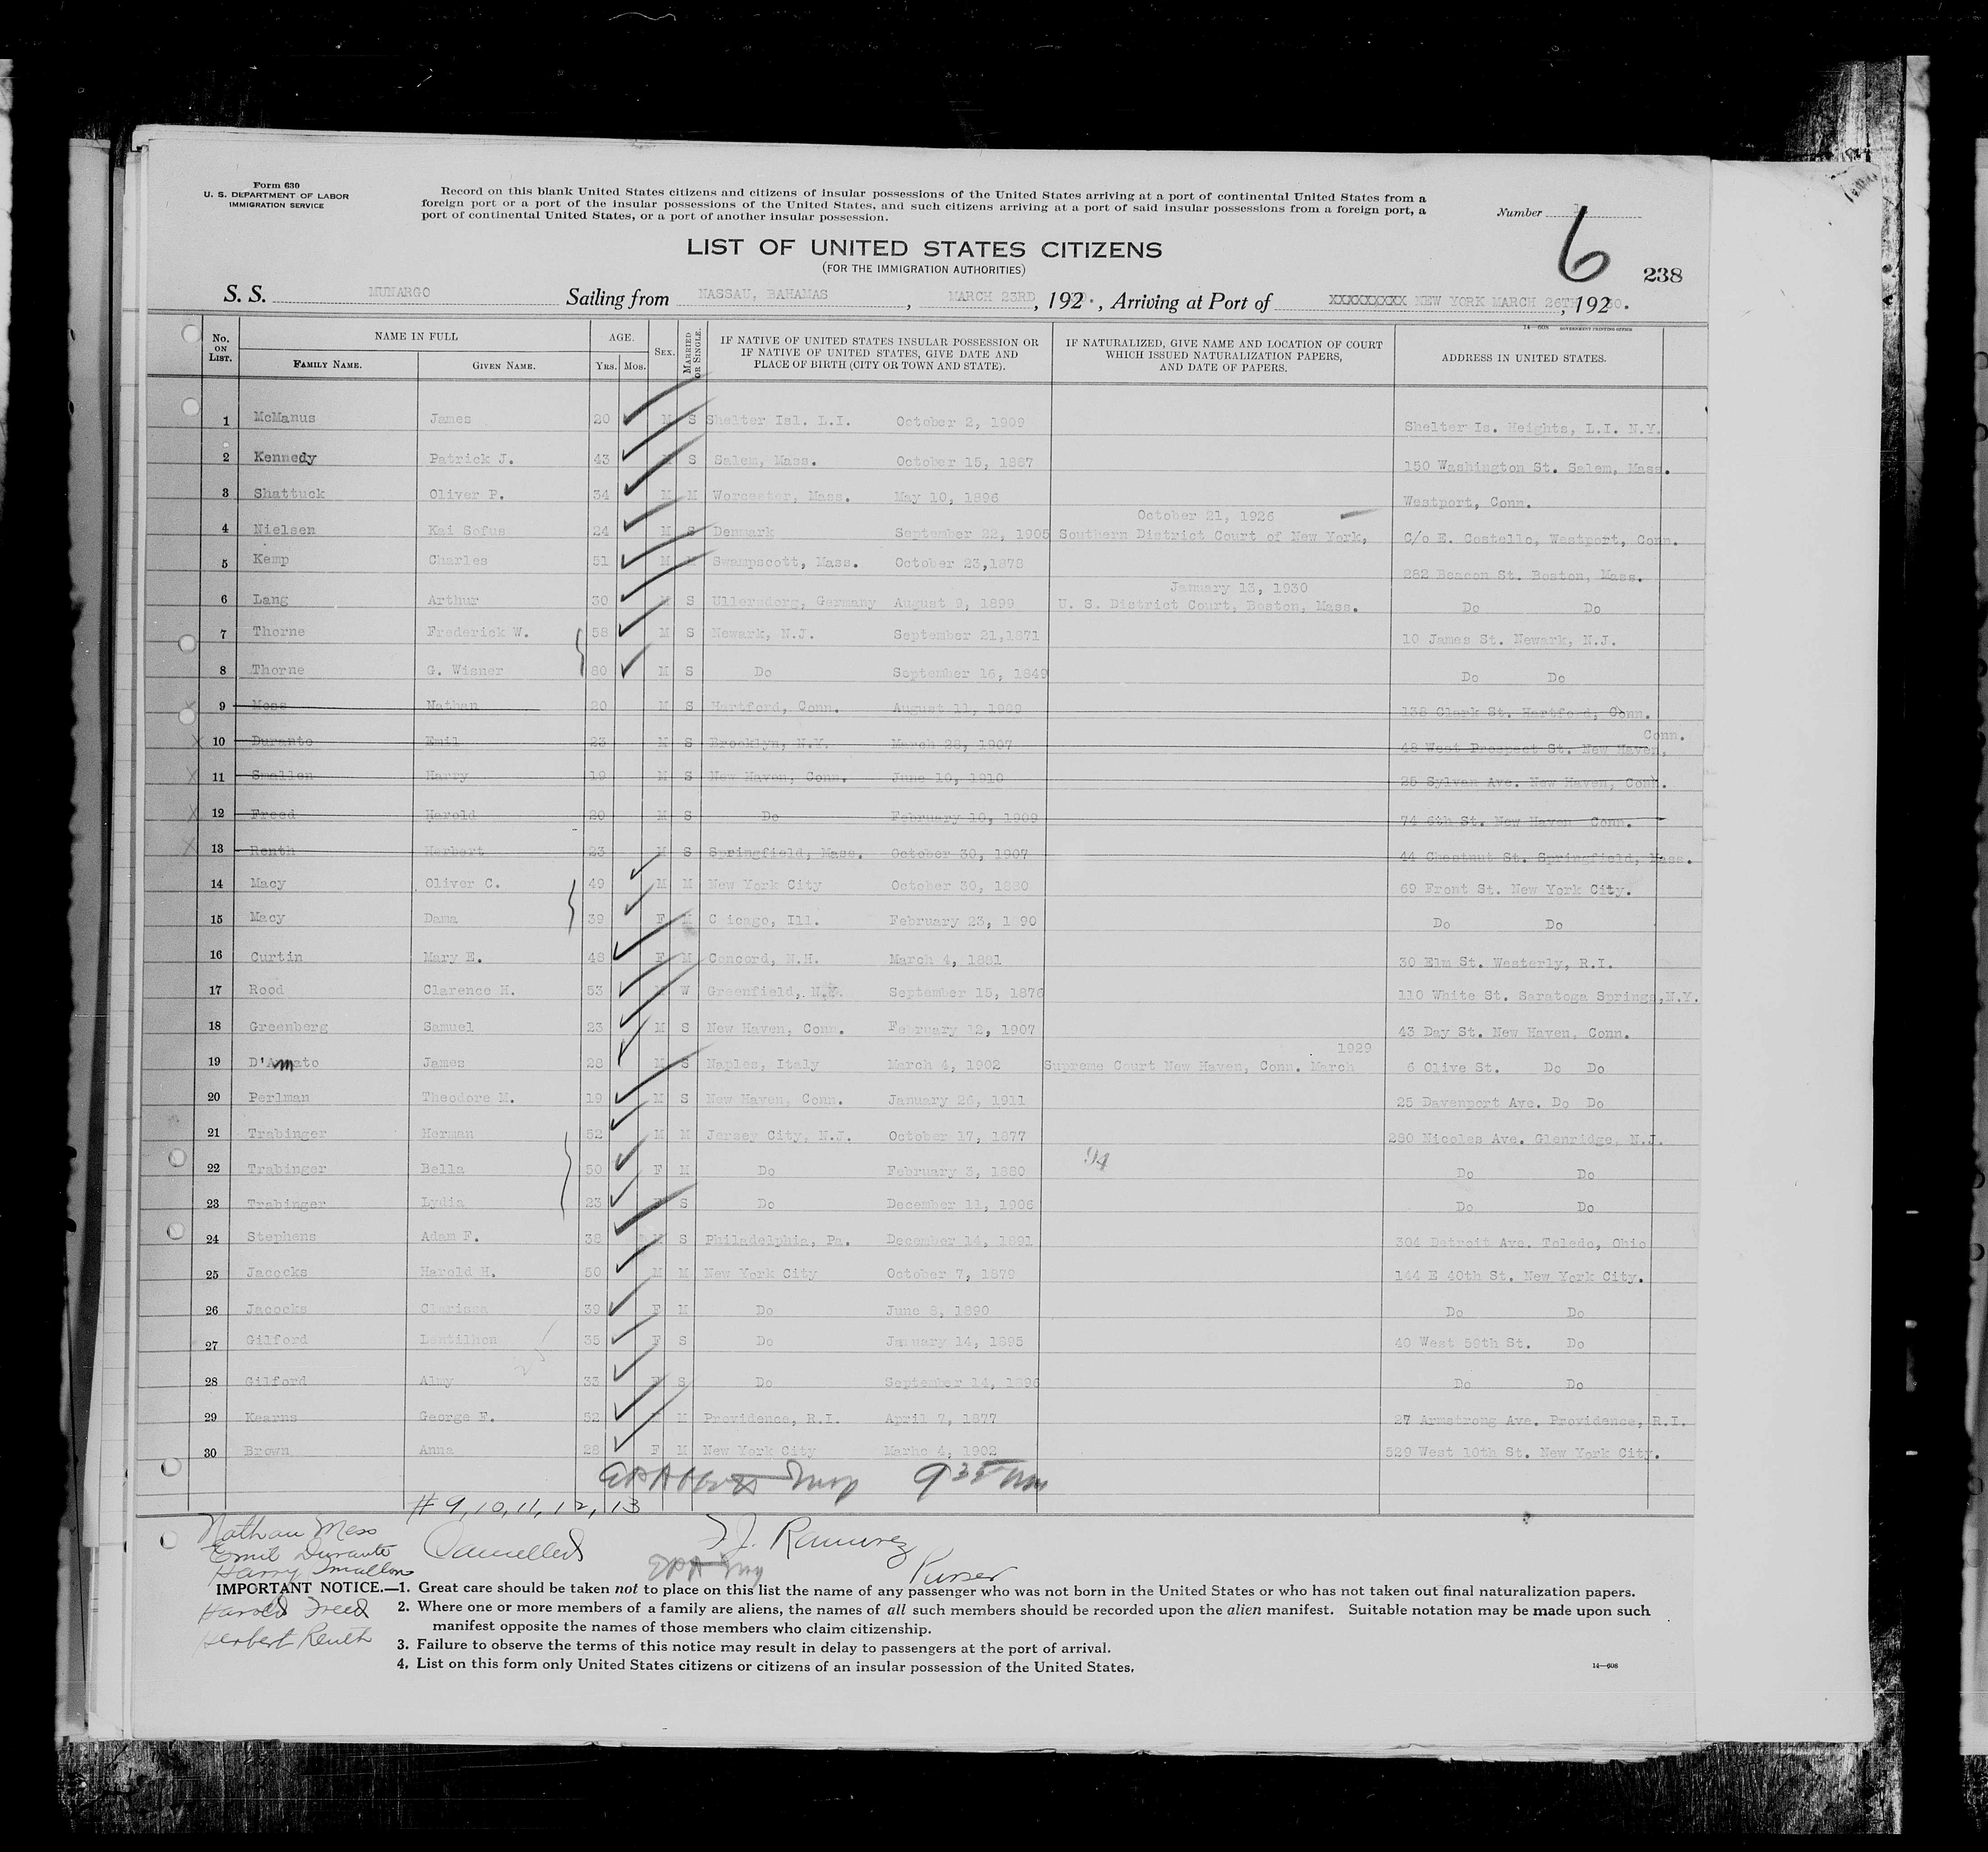 Form 630
U. S. DEPARTMENT OF LABOR
IMMIGRATION SERVICE
Record on this blank United States citizens and citizens of insular possessions of the United States arriving at a port of continental United States from a
foreign port or a port of the insular possessions of the United States, and such citizens arriving at a port of said insular possessions from a foreign port, a
port of continental United States, or a port of another insular possession.
Number
6
238
LIST OF UNITED STATES CITIZENS
(FOR THE IMMIGRATION AUTHORITIES)
S. S. MUNARGO Sailing from NASSAU, BAHAMAS, MARCH 23RD, 192 , Arriving at Port of XXXXXXXXX NEW YORK MARCH 26TH, 192 30.
14—608 GOVERNMENT PRINTING OFFICE
No. ON LIST. NAME IN FULL AGE. SEX. MARRIED OR SINGLE. IF NATIVE OF UNITED STATES INSULAR POSSESSION OR IF NATIVE OF UNITED STATES, GIVE DATE AND PLACE OF BIRTH (CITY OR TOWN AND STATE). IF NATURALIZED, GIVE NAME AND LOCATION OF COURT WHICH ISSUED NATURALIZATION PAPERS, AND DATE OF PAPERS. ADDRESS IN UNITED STATES.
FAMILY NAME. GIVEN NAME. YRS. MOS.
1 McManus James 20 M S Shelter Isl. L.I. October 2, 1909 Shelter Is. Heights, L.I. N.Y.
2 Kennedy Patrick J. 43 S Salem, Mass. October 15, 1887 150 Washington St. Salem, Mass.
3 Shattuck Oliver P. 34 M M Worcester, Mass. May 10, 1896 Westport, Conn.
October 21, 1926
4 Nielsen Kai Sofus 24 M S Denmark September 22, 1905 Southern District Court of New York, C/o E. Costello, Westport, Conn.
5 Kemp Charles 51 M M Swampscott, Mass. October 23,1878 282 Beacon St. Boston, Mass.
January 13, 1930
6 Lang Arthur 30 M S Ullersdorg, Germany August 9, 1899 U. S. District Court, Boston, Mass. Do Do
7 Thorne Frederick W. 58 M S Newark, N.J. September 21,1871 10 James St. Newark, N.J.
8 Thorne G. Wisner 80 M S Do September 16, 1849 Do Do
9 Mess Nathan 20 M S Hartford, Conn. August 11, 1909 138 Clark St. Hartford, Conn.
Conn.
10 Durante Emil 23 M S Brooklyn, N.Y. March 28, 1907 48 West Prospect St. New Haven,
11 Smallen Harry 19 M S New Haven, Conn. June 10, 1910 25 Sylvan Ave. New Haven, Conn.
12 Freed Harold 20 M S Do February 10, 1909 74 6th St. New Haven Conn.
13 Renth Herbert 23 M S Springfield, Mass. October 30, 1907 44 Chestnut St. Springfield, Mass.
14 Macy Oliver C. 49 M M New York City October 30, 1880 69 Front St. New York City.
15 Macy Dama 39 F M C icago, Ill. February 23, 1890 Do Do
16 Curtin Mary E. 48 F M Concord, N.H. March 4, 1881 30 Elm St. Westerly, R.I.
17 Rood Clarence H. 53 W Greenfield, N.Y. September 15, 1876 110 White St. Saratoga Springs,N.Y.
18 Greenberg Samuel 23 M S New Haven, Conn. February 12, 1907 43 Day St. New Haven, Conn.
1929
19 D'Amato James 28 M S Naples, Italy March 4, 1902 Supreme Court New Haven, Conn. March 6 Olive St. Do Do
20 Perlman Theodore M. 19 M S New Haven, Conn. January 26, 1911 25 Davenport Ave. Do Do
21 Trabinger Herman 52 M M Jersey City, N.J. October 17, 1877 280 Nicoles Ave. Glenridge, N.J.
22 Trabinger Bella 50 F M Do February 3, 1880 94 Do Do
23 Trabinger Lydia 23 F S Do December 11, 1906 Do Do
24 Stephens Adam F. 38 M S Philadelphia, Pa. December 14, 1891 304 Detroit Ave. Toledo, Ohio
25 Jacocks Harold H. 50 M M New York City October 7, 1879 144 E 40th St. New York City.
26 Jacocks Clarissa 39 F M Do June 8, 1890 Do Do
27 Gilford Lentilhon 35 F S Do January 14, 1895 40 West 59th St. Do
28 Gilford Almy 33 F S Do September 14, 1896 Do Do
29 Kearns George F. 52 M Providence, R.I. April 7, 1877 27 Armstrong Ave. Providence, R.I.
30 Brown Anna 28 F M New York City Marhc 4, 1902 529 West 10th St. New York City.
9 35 am
# 9, 10, 11, 12, 13
Cancelled
Nathan Mess
Emil Durante
Harry Smallens
Harold Freed
Herbert Renth
J. Ramirez
Purser
IMPORTANT NOTICE.—1. Great care should be taken not to place on this list the name of any passenger who was not born in the United States or who has not taken out final naturalization papers.
2. Where one or more members of a family are aliens, the names of all such members should be recorded upon the alien manifest. Suitable notation may be made upon such
manifest opposite the names of those members who claim citizenship.
3. Failure to observe the terms of this notice may result in delay to passengers at the port of arrival.
4. List on this form only United States citizens or citizens of an insular possession of the United States.
14—608